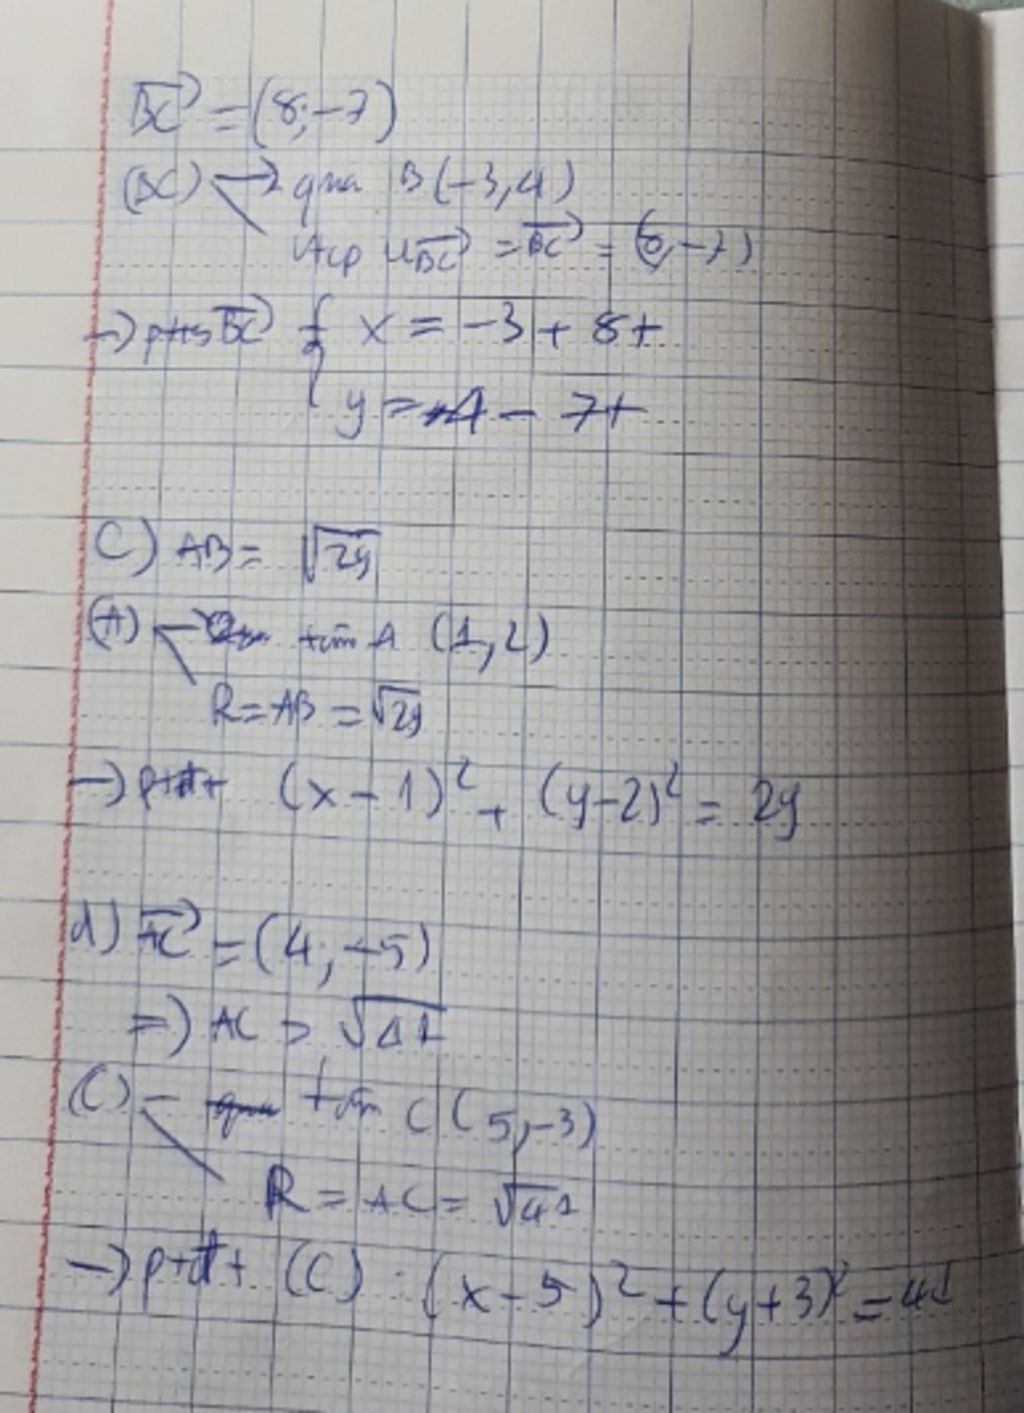 BC→ = (8; -7)
(BC) → qua B(-3, 4)
vtcp u BC→ = BC→ = (8, -7)
→ ptts BC→ { x = -3 + 8t
y = 4 - 7t
C) AB = √29
(A) tâm A (1, 2)
R = AB = √29
→ ptđt (x - 1)² + (y - 2)² = 29
d) AC→ = (4; -5)
=> AC = √41
(C) - tâm C (5, -3)
R = AC = √41
→ ptđt (C) : (x - 5)² + (y + 3)² = 41